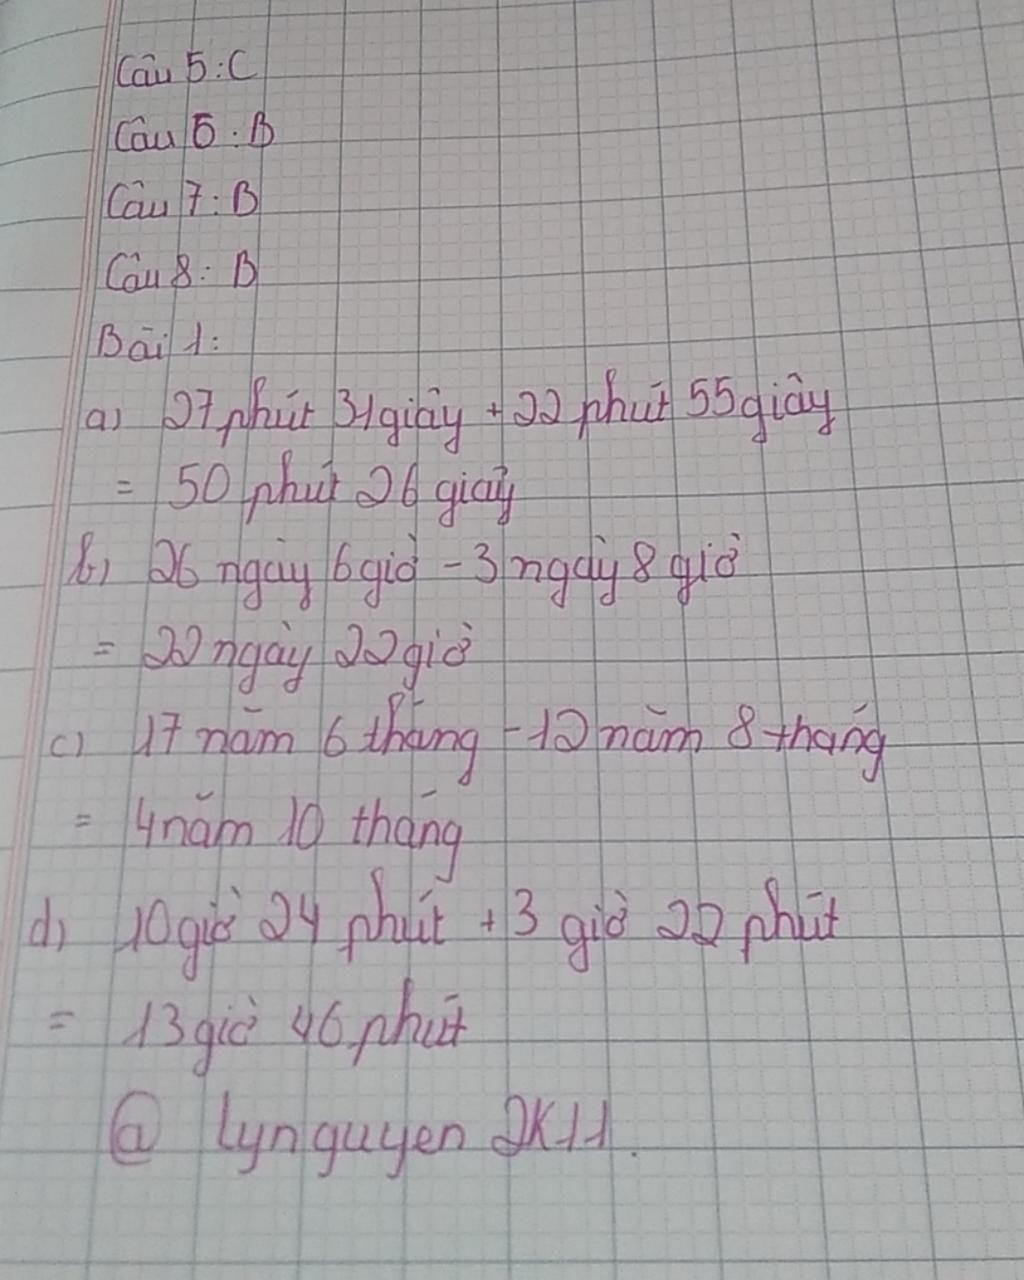 Câu 5: C
Câu 6: B
Câu 7: B
Câu 8: B
Bài 1:
a) 27 phút 31 giây + 22 phút 55 giây
= 50 phút 26 giây
b) 26 ngày 6 giờ - 3 ngày 8 giờ
= 22 ngày 22 giờ
c) 17 năm 6 tháng - 12 năm 8 tháng
= 4 năm 10 tháng
d) 10 giờ 24 phút + 3 giờ 22 phút
= 13 giờ 46 phút
@ Lynguyen 2K11.